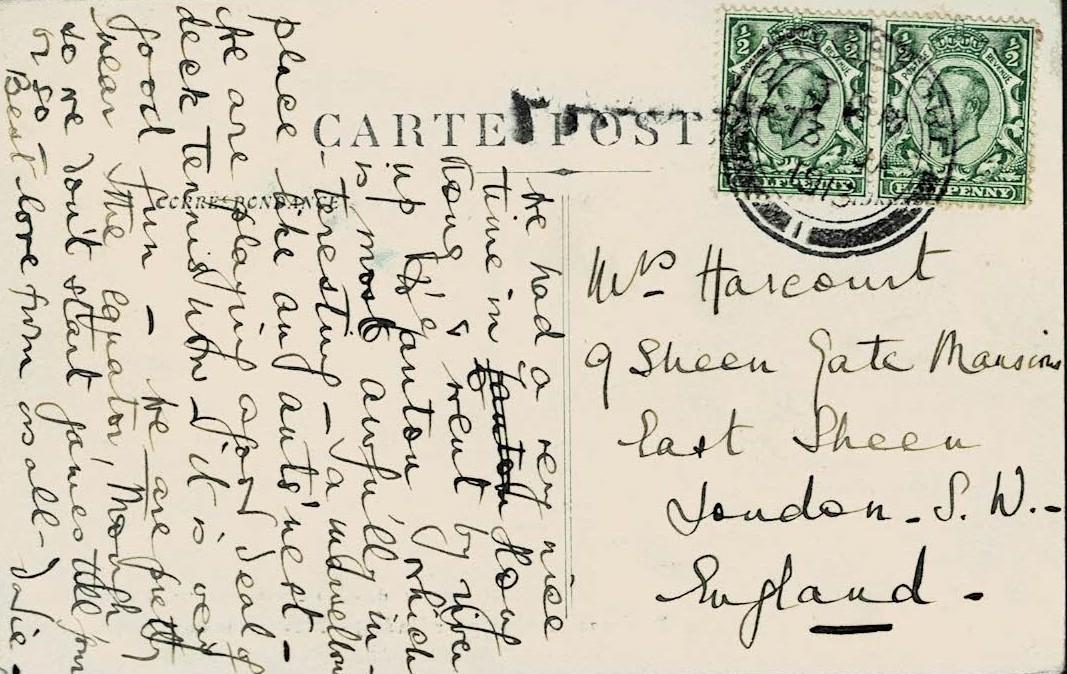 CARTE POSTALE
CORRESPONDANCE
We had a very nice
time in Canton Hong
Kong & went by river
up to Canton which
is most awfully in-
teresting - a marvellous
place like an ants' nest -
We are playing a good deal of
deck tennis now, it is very
good fun - We are pretty
near the equator, though
so we don't start games till four
or so -
Best love from us all -
½ ½
POSTAGE REVENUE
HALFPENNY
½ ½
POSTAGE REVENUE
HALFPENNY
Mrs Harcourt
9 Sheen Gate Mansions
East Sheen
London. S. W.-
England -